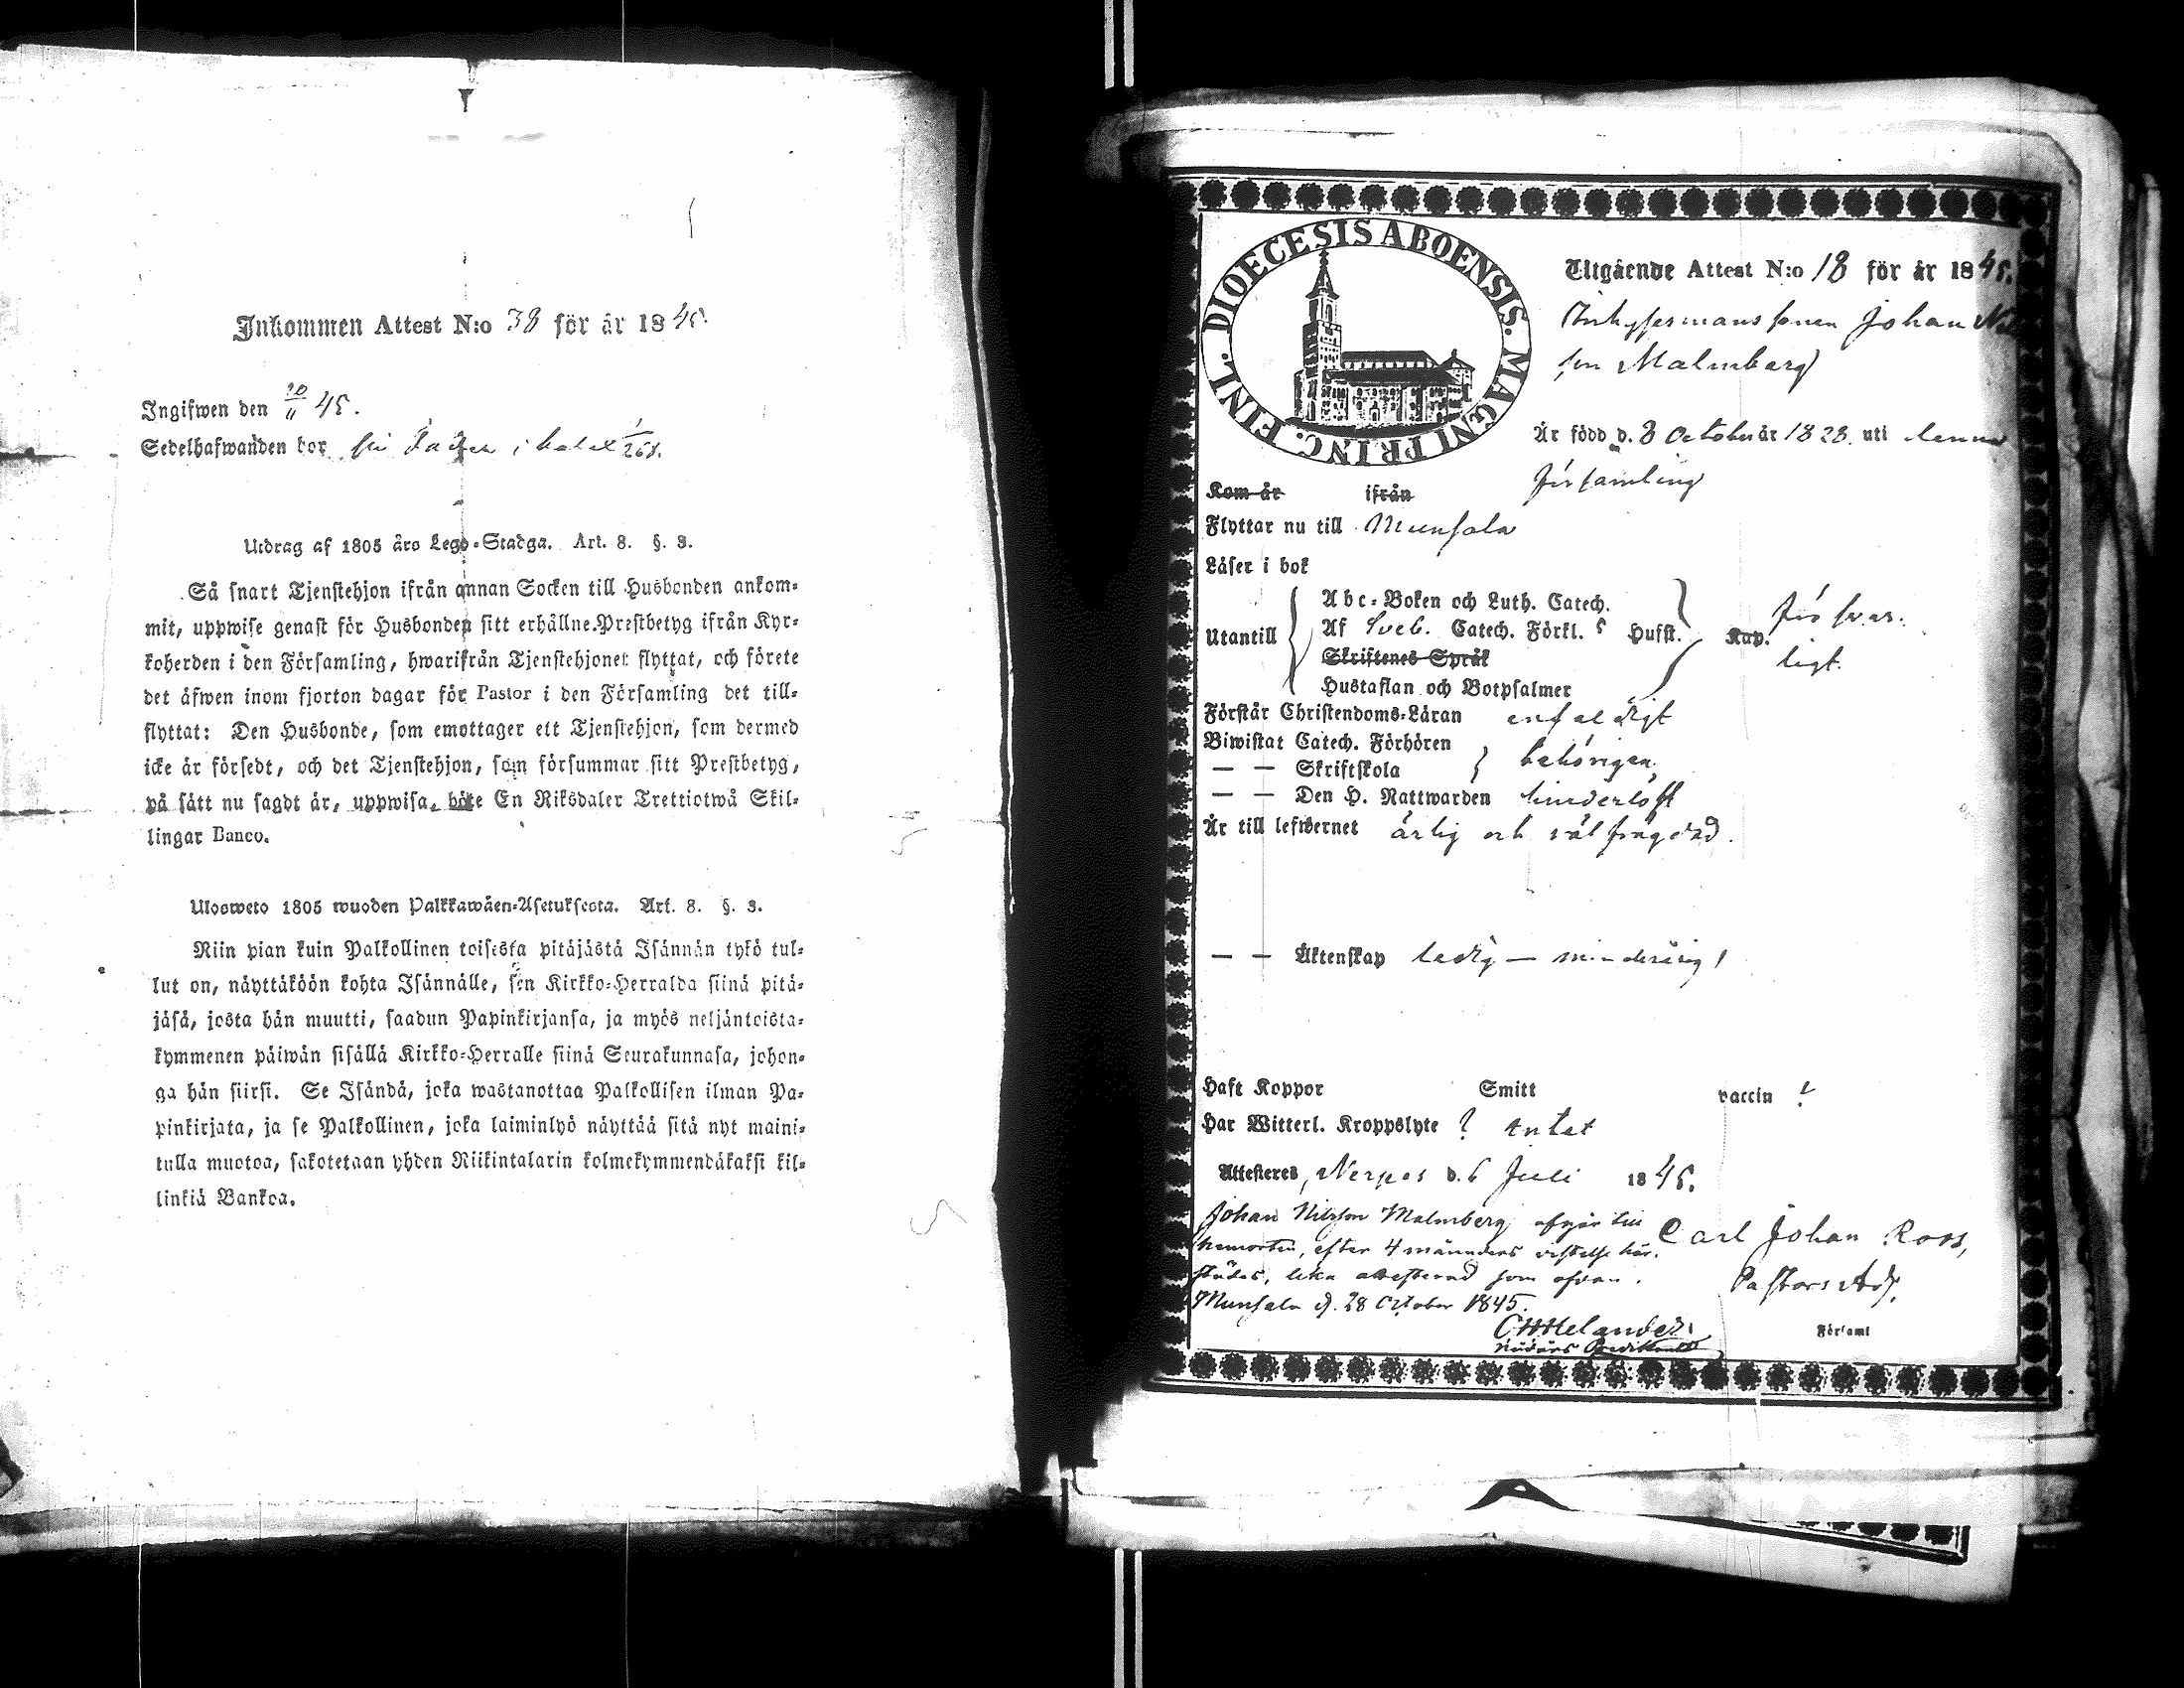 Inkommen Attest N:o 38 för år 1845.
Ingifwen den 20/11 45.
Sedelhafwanden bor
Utdrag af 1805 års Lego-Stadga. Art. 8. §. 3.
Så snart Tjenstehjon ifrån annan Socken till Husbonden ankom-
mit, uppwise genast för Husbonden sitt erhållne Prestbetyg ifrån Kyr-
koherden i den Församling, hwarifrån Tjenstehjonet flyttat, och förete
det äfwen inom fjorton dagar för Pastor i den Församling det till-
flyttat: Den Husbonde, som emottager ett Tjenstehjon, som dermed
icke är försedt, och det Tjenstehjon, som försummar sitt Prestbetyg,
på sätt nu sagdt är, uppwisa, böte En Riksdaler Trettiotwå Skil-
lingar Banco.
Ulosweto 1805 wuoden Palkkawäen-Asetuksesta. Art. 8. §. 3.
Niin pian kuin Palkollinen toisesta pitäjästä Isännän tykö tul-
lut on, näyttäköön kohta Isännälle, sen Kirkko-Herralda siinä pitä-
jäsä, josta hän muutti, saadun Papinkirjansa, ja myös neljäntoista-
kymmenen päiwän sisällä Kirkko-Herralle siinä Seurakunnasa, johon-
ga hän siirsi. Se Isändä, joka wastanottaa Palkollisen ilman Pa-
pinkirjata, ja se Palkollinen, joka laiminlyö näyttää sitä nyt maini-
tulla muotoa, sakotetaan yhden Riikintalarin kolmekymmendäkaksi kil-
linkiä Bankoa.
DIOECESIS ABOENSIS. MAGNI PRINC. FINL.
Utgående Attest N:o 18 för år 1845.
Inhysesmans sonen Johan Nils
son Malmberg
Är född d. 8 October år 1828. uti denna
församling
Kom år ifrån
Flyttar nu till Munsala
Läser i bok
Utantill
Abc-Boken och Luth. Catech.
Af Sveb. Catech. Förkl. 5 Hufst. Kap.
Skriftenes Språk
Hustaflan och Botpsalmer
försvar-
ligt.
Förstår Christendoms-Läran enfaldigt
Biwistat Catech. Förhören
— — Skriftskola behörigen,
— — Den H. Nattwarden hinderlöst
Är till lefwernet ärlig och väl frägdad.
— — Äktenskap ledig — minderårig!
Haft Koppor Smitt vaccin !
Har Witterl. Kroppslyte ? intet
Attesteres, Nerpes d. 6 Juli 1845.
Carl Johan Roos,
Pastors Adj.
Johan Nilsson Malmberg afgår till
hemorten, efter 4 månaders vistelse här-
städes, lika attesterad som ofvan.
Munsala d. 28 October 1845.
CHMelander
Nådårs Predikant
Församl